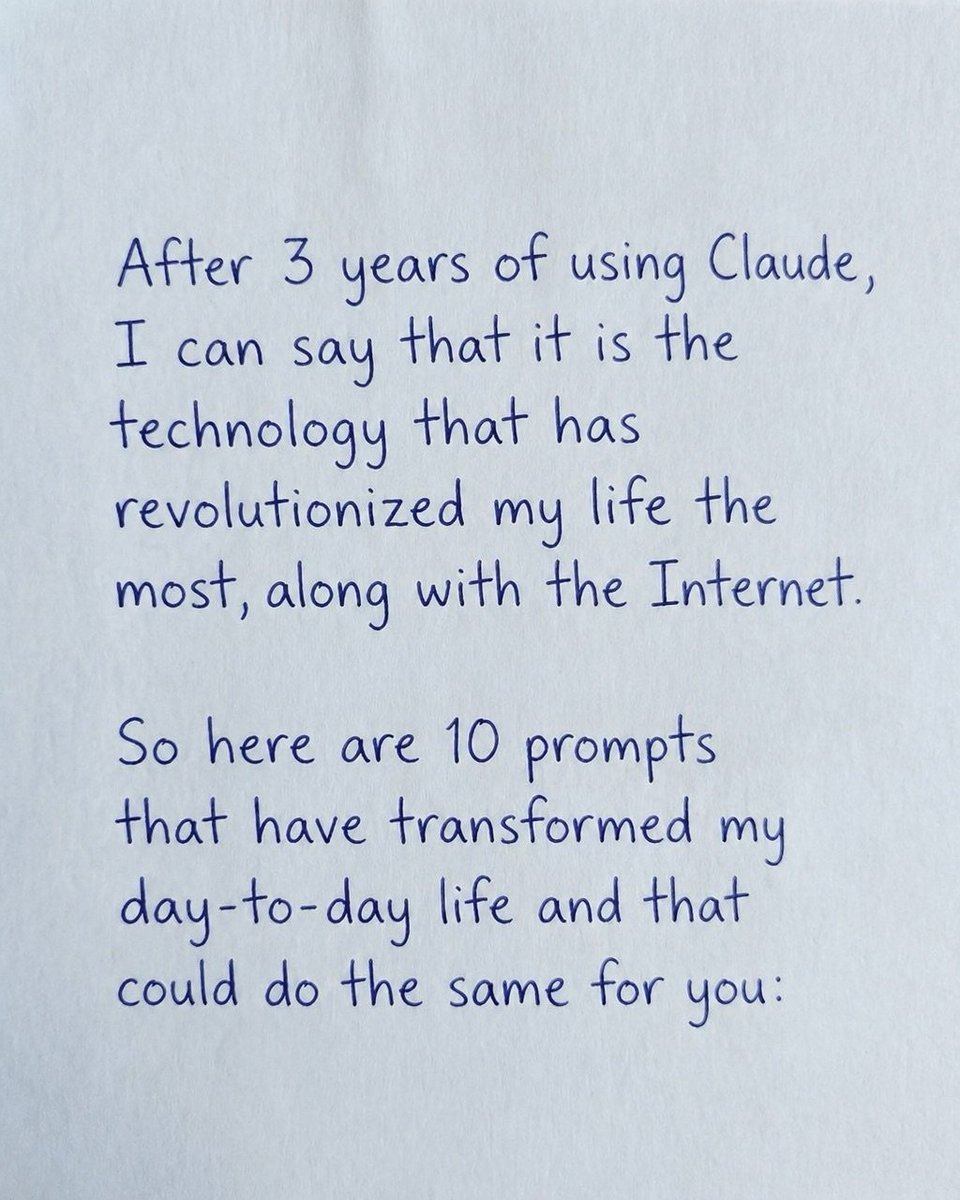 After 3 years of using Claude,
I can say that it is the
technology that has
revolutionized my life the
most, along with the Internet.
So here are 10 prompts
that have transformed my
day-to-day life and that
could do the same for you: